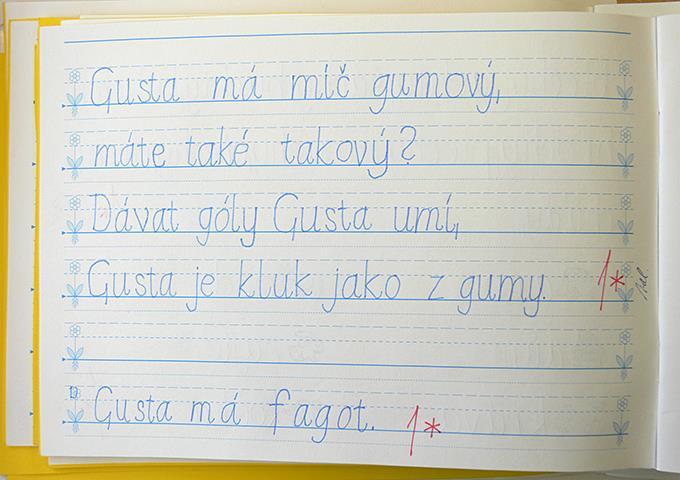 Gusta má míč gumový,
máte také takový?
Dávat góly Gusta umí,
Gusta je kluk jako z gumy. 1*
Gusta má fagot. 1*